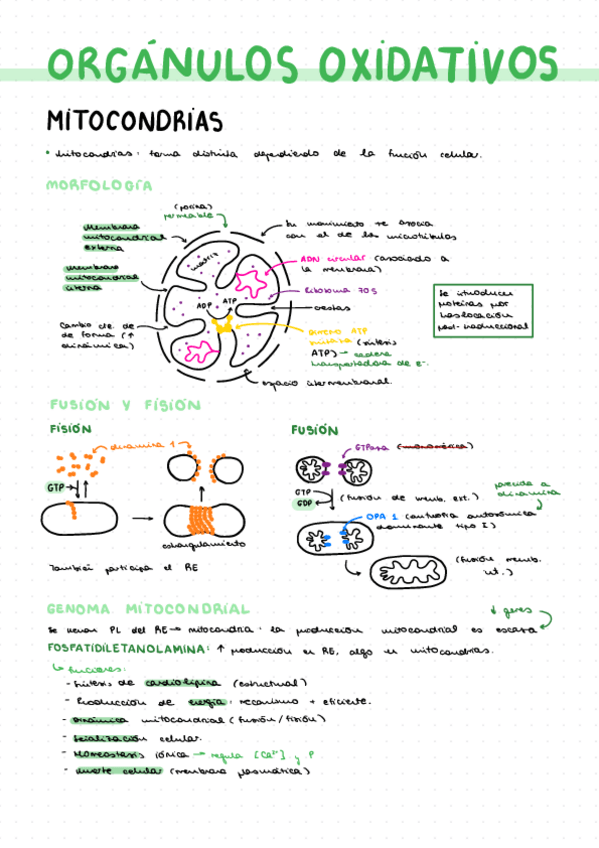 ORGÁNULOS OXIDATIVOS
MITOCONDRIAS
• Mitocondrias: forma distinta dependiendo de la función celular.
MORFOLOGÍA
(porina)
permeable
Membrana
mitocondrial
externa
Su movimiento se asocia
con el de los microtúbulos
matriz
ADN circular (asociado a
la membrana)
Membrana
mitocondrial
interna
Ribosoma 70 S
ADP
ATP
crestas
Se introducen
proteínas por
traslocación
post-traduccional
Cambio cte. de
de forma (↑
dinámica)
ATP
(síntesis
ATP) → cadena
transportadora de e-.
espacio intermembranal.
FUSIÓN Y FISIÓN
FISIÓN
FUSIÓN
dinamina 1
GTPasa (monomérica)
GTP
GTP
GDP
(fusión de memb. ext.)
parecida a
dinamina
OPA 1 (antrofia autonómica
dominante tipo I)
estrangulamiento
(fusión memb.
int.)
También participa el RE
GENOMA MITOCONDRIAL
↓ genes
Se llevan PL del RE → mitocondria · la producción mitocondrial es escasa
FOSFATIDILETANOLAMINA: ↑ producción en RE, algo en mitocondrias.
↳ funciones:
- Síntesis de cardiolipina (estructural)
- Producción de energía: mecanismo + eficiente.
- Dinámica mitocondrial (fusión / fisión)
- Señalización celular.
- Homeostasis iónica → regula [Ca2+] y P
- Muerte celular (membrana plasmática)